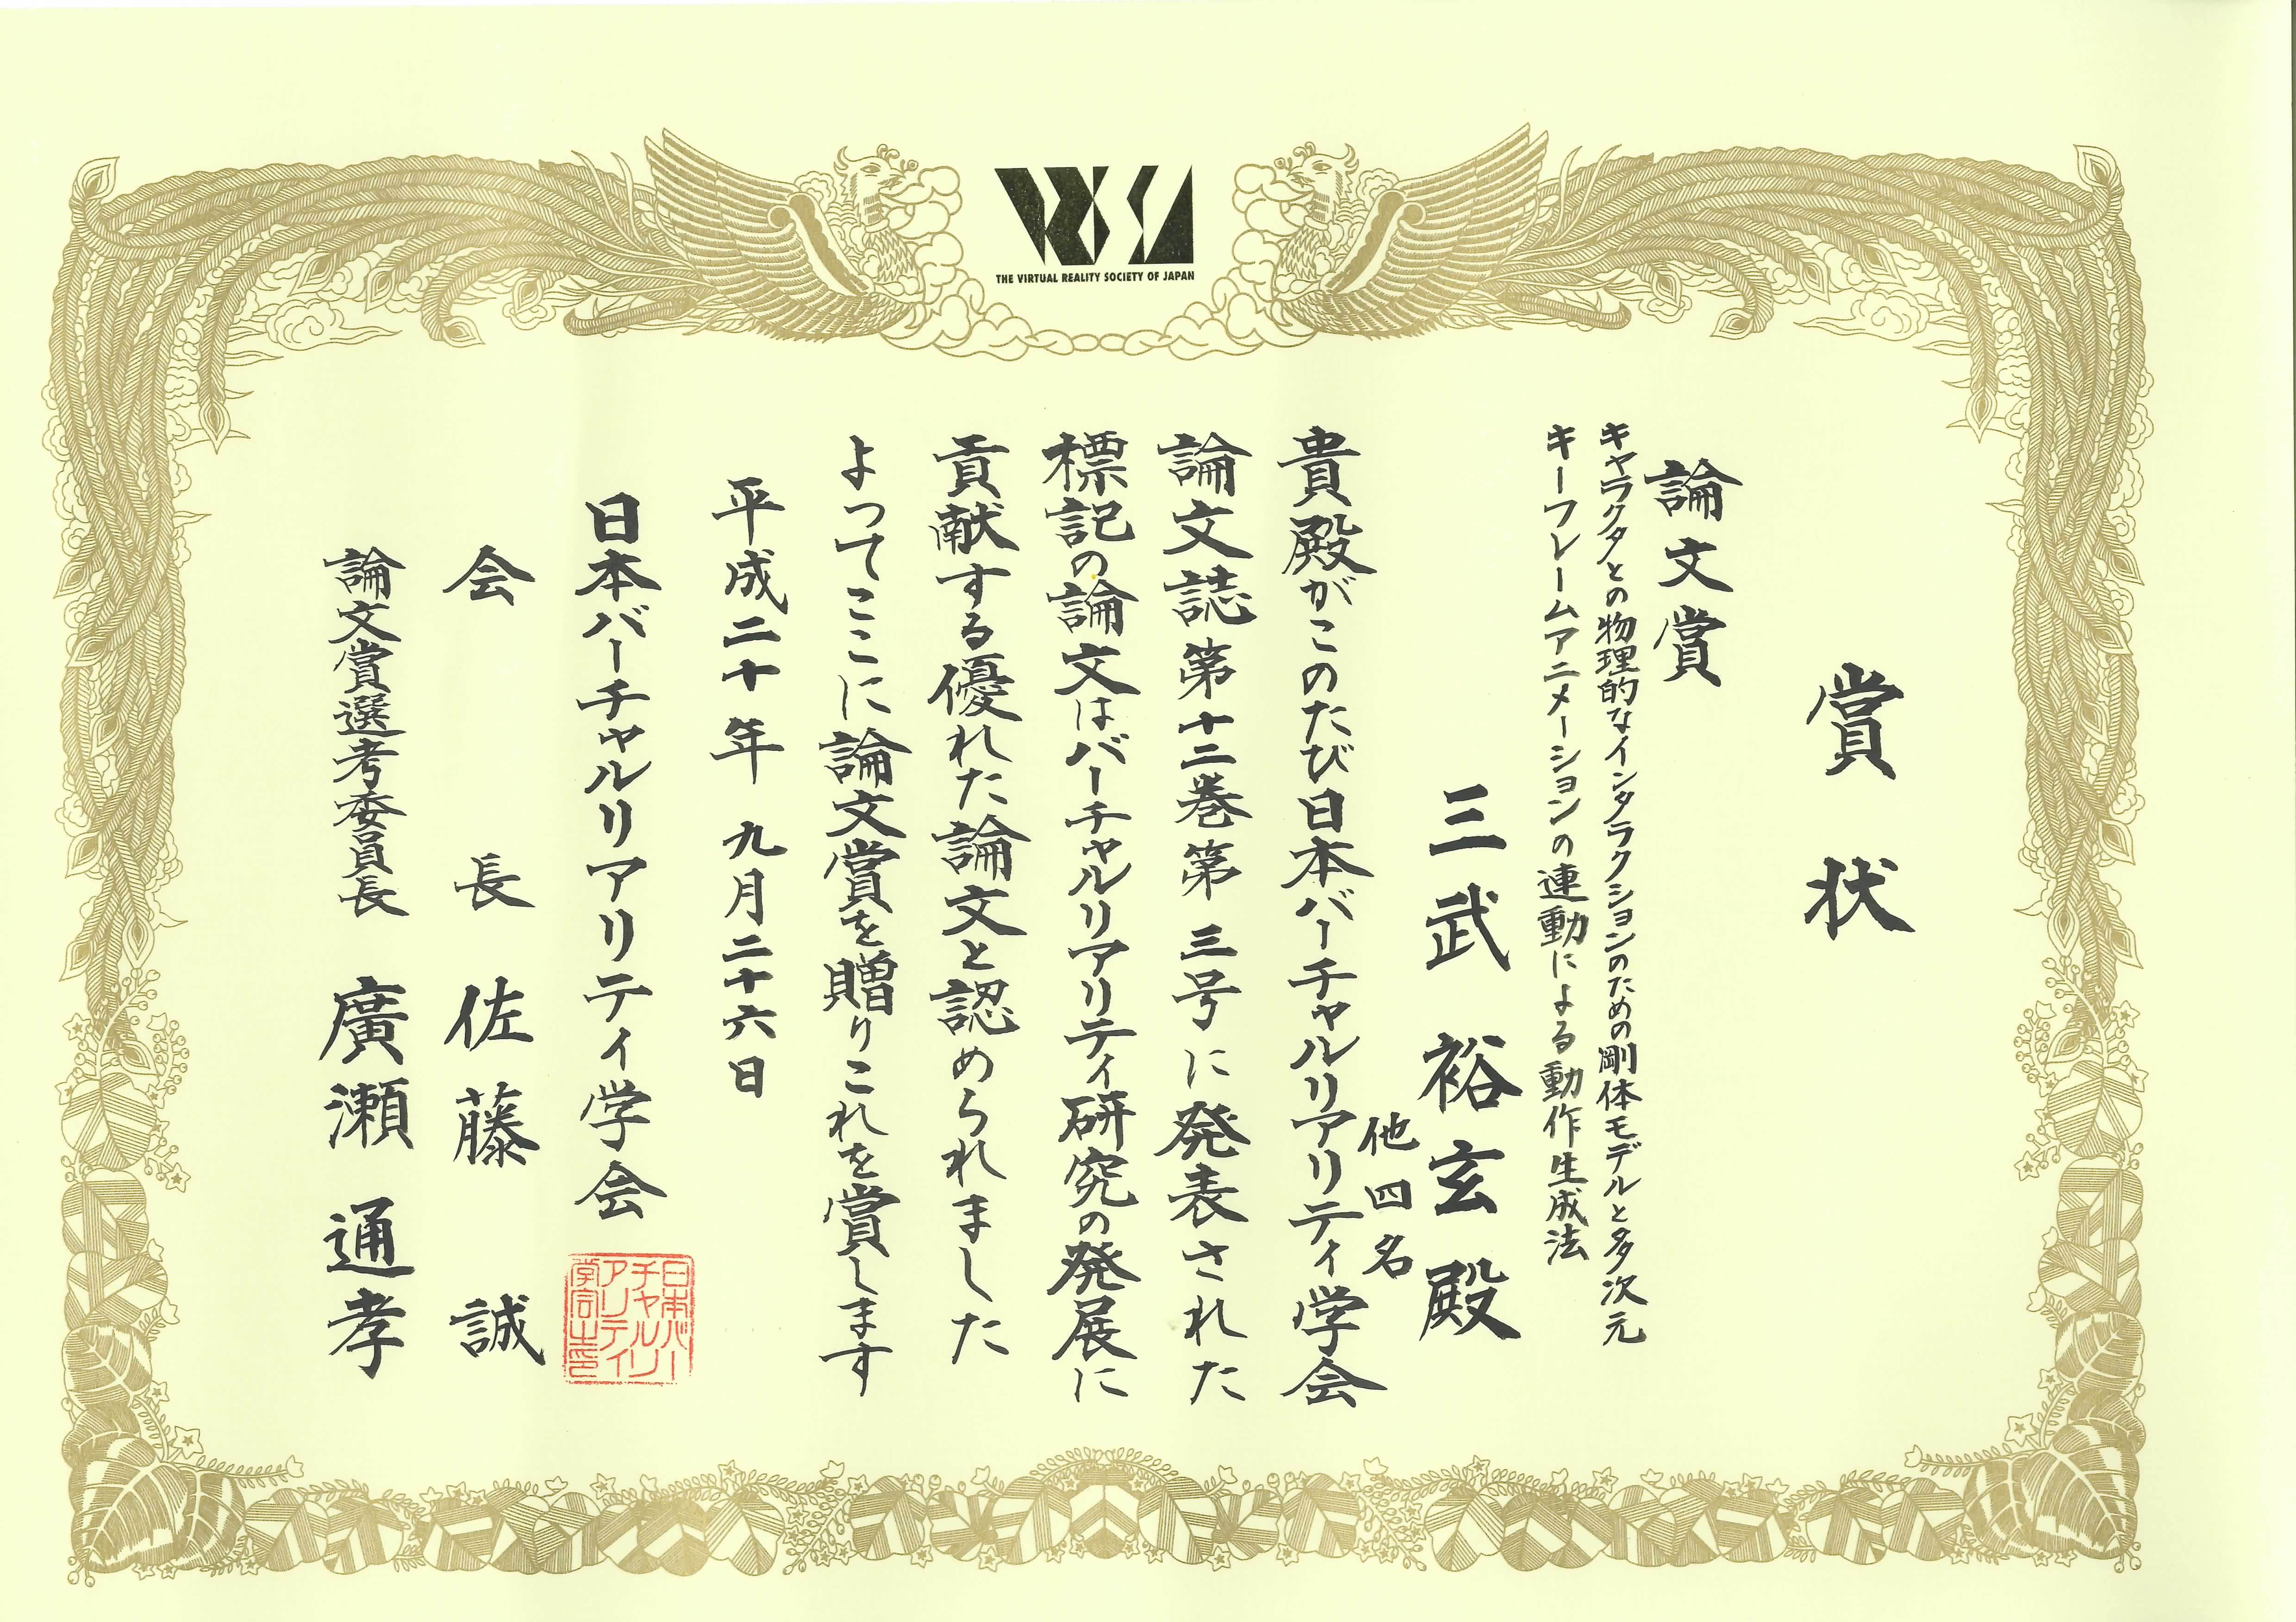 THE VIRTUAL REALITY SOCIETY OF JAPAN
賞状
論文賞
キャラクタとの物理的なインタラクションのための剛体モデルと多次元
キーフレームアニメーションの連動による動作生成法
三武裕玄殿
他四名
貴殿がこのたび日本バーチャルリアリティ学会
論文誌第十二巻第三号に発表された
標記の論文はバーチャルリアリティ研究の発展に
貢献する優れた論文と認められました
よってここに論文賞を贈りこれを賞します
平成二十年九月二十六日
日本バーチャルリアリティ学会
会長佐藤誠
論文賞選考委員長廣瀬通孝
日本バー
チャルリ
アリティ
学会之印